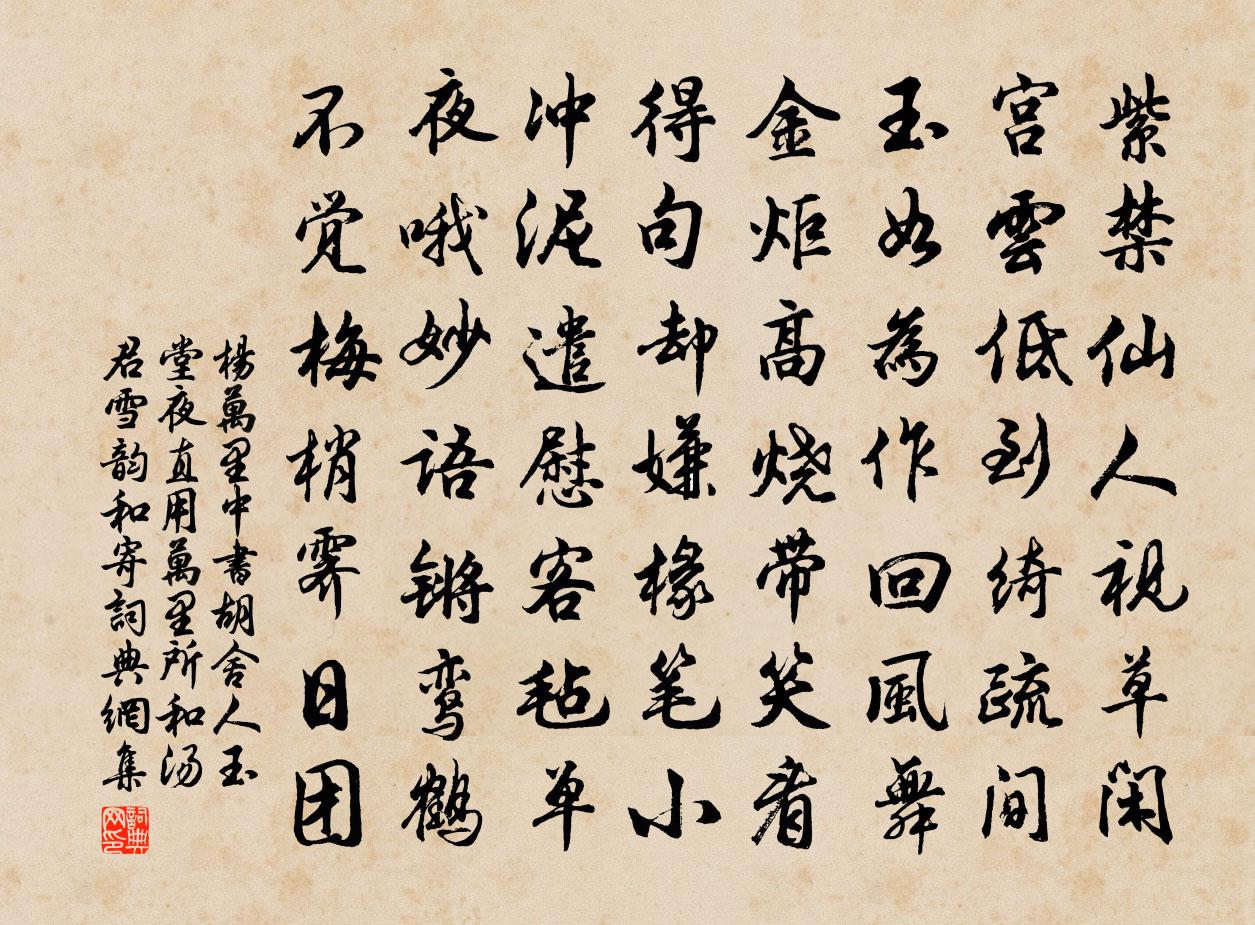 紫禁仙人視草閑
宫雲低到綺疏间
玉如為作回風舞
金炬高烧带笑看
得句却嫌椽笔小
冲泥遣慰客毡单
夜哦妙语锵鸾鹤
不觉梅梢霁日团
楊萬里中書胡舍人玉
堂夜直用萬里所和汤
君雪韵和寄詞典網集
詞典网印